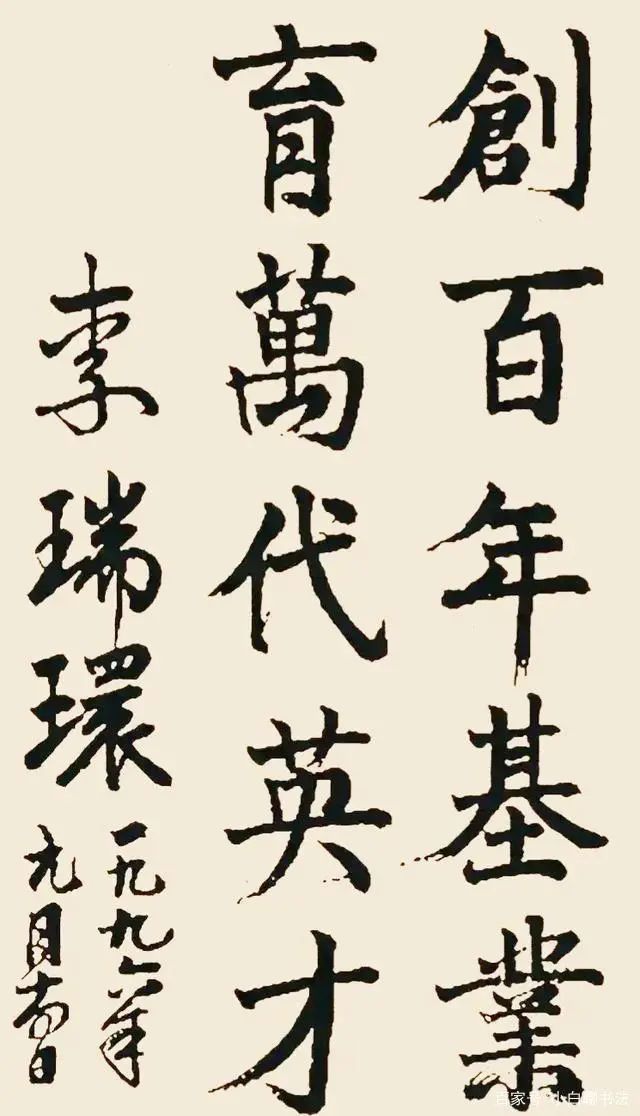 創百年基業
育萬代英才
李瑞環
一九九六年
九月
百家号/小白聊书法